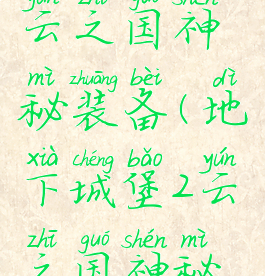 yún zhī guó shén
云之国神
mì zhuāng bèi dì
秘装备(地
xià chéng bǎo yún
下城堡2云
zhī guó shén mì
之国神秘